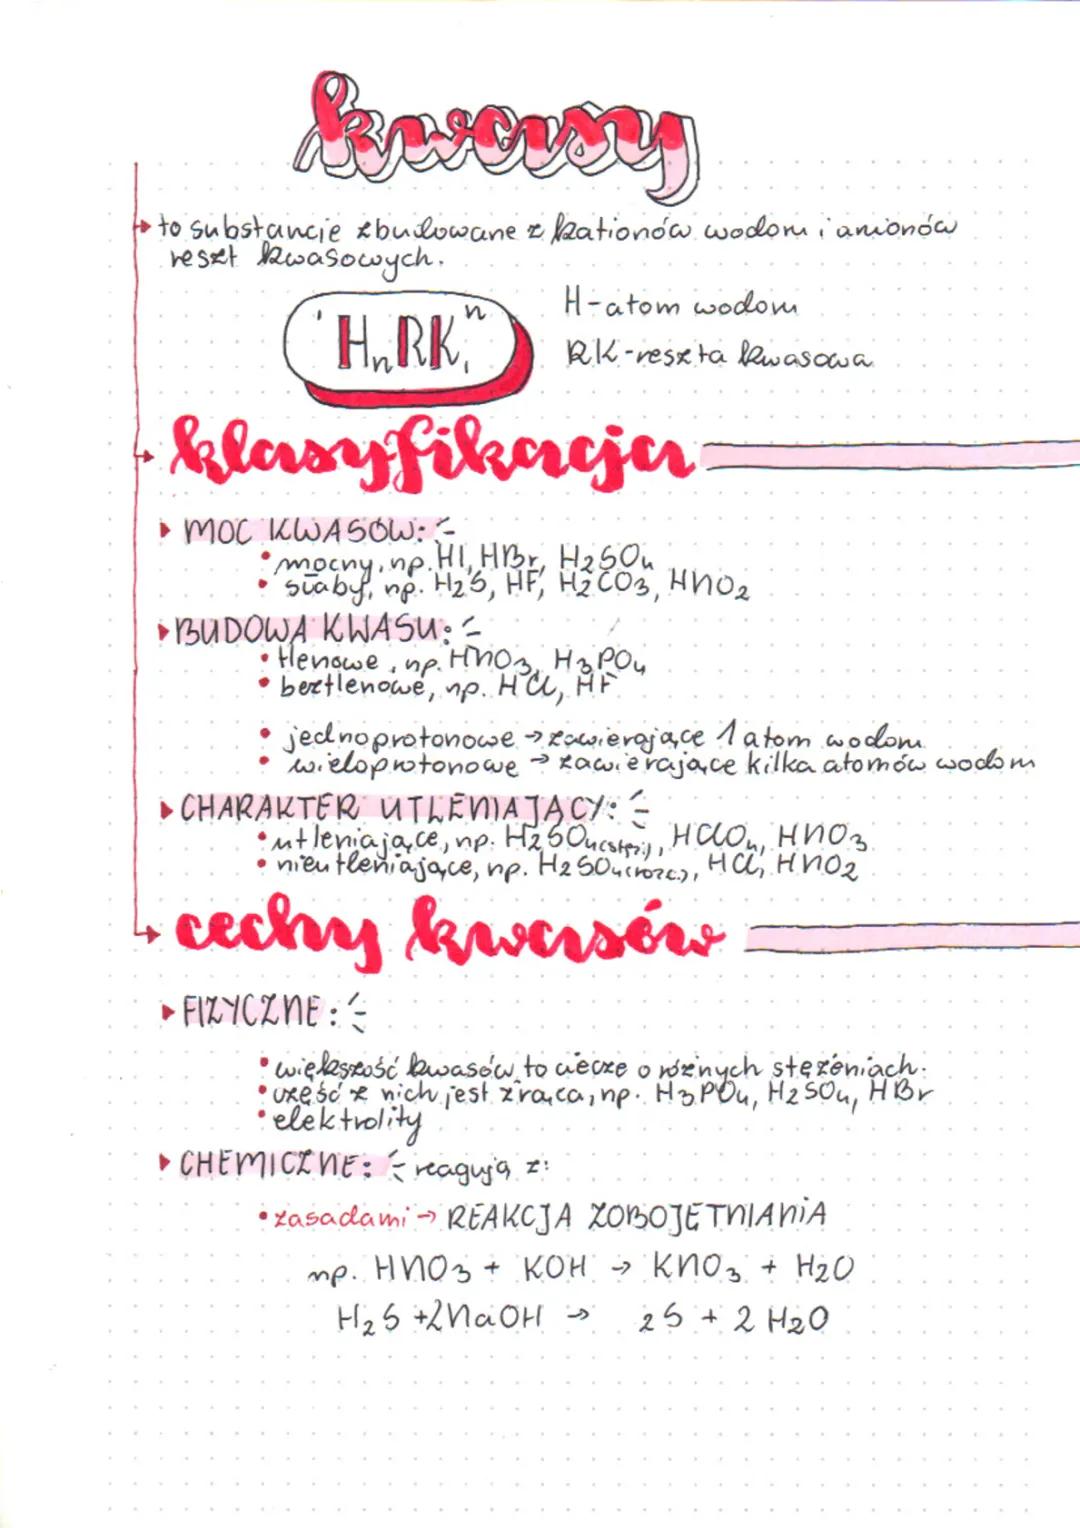 kwasy
to substancje zbudowane z kationów wodoru i anionów
reszt kwasowych.
ᴵHₙRKₗⁿ
H-atom wodoru
RK-reszta kwasowa
klasyfikacja
MOC KWASÓW:
• mocny, np. HI, HBr, H₂SO₄
• słaby, np. H₂S, HF, H₂CO₃, HNO₂
BUDOWA KWASU:
• tlenowe, np. HNO₃, H₃PO₄
• beztlenowe, np. HCl, HF
• jednoprotonowe → zawierające 1 atom wodoru
• wieloprotonowe → zawierające kilka atomów wodoru
CHARAKTER UTLENIAJĄCY:
• utleniające, np. H₂SO₄(stęż.), HClO₄, HNO₃
• nieutleniające, np. H₂SO₄(rozc.), HCl, HNO₂
cechy kwasów
FIZYCZNE:
• większość kwasów to ciecze o różnych stężeniach.
• część z nich jest żrąca, np. H₃PO₄, H₂SO₄, HBr
• elektrolity
CHEMICZNE: reagują z:
• zasadami → REAKCJA ZOBOJĘTNIANIA
np. HNO₃ + KOH → KNO₃ + H₂O
H₂S + 2NaOH → ₂S + 2 H₂O